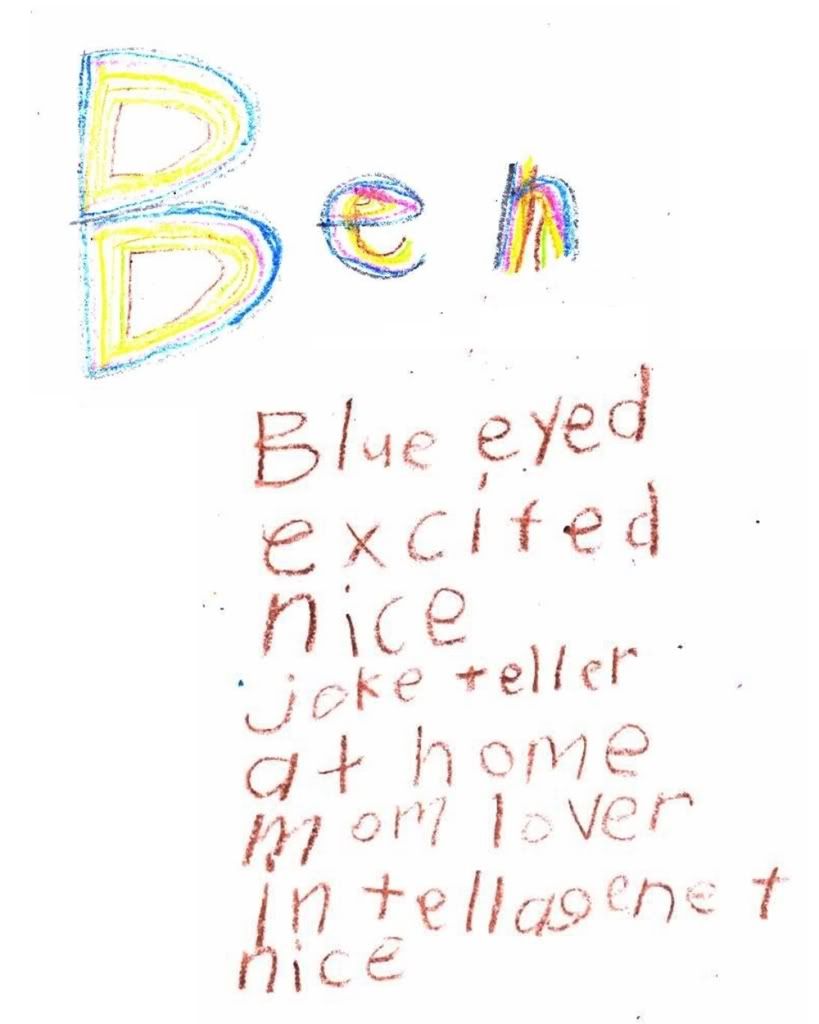 Ben
Blue eyed
excited
nice
joke teller
at home
mom lover
intellagenet
nice